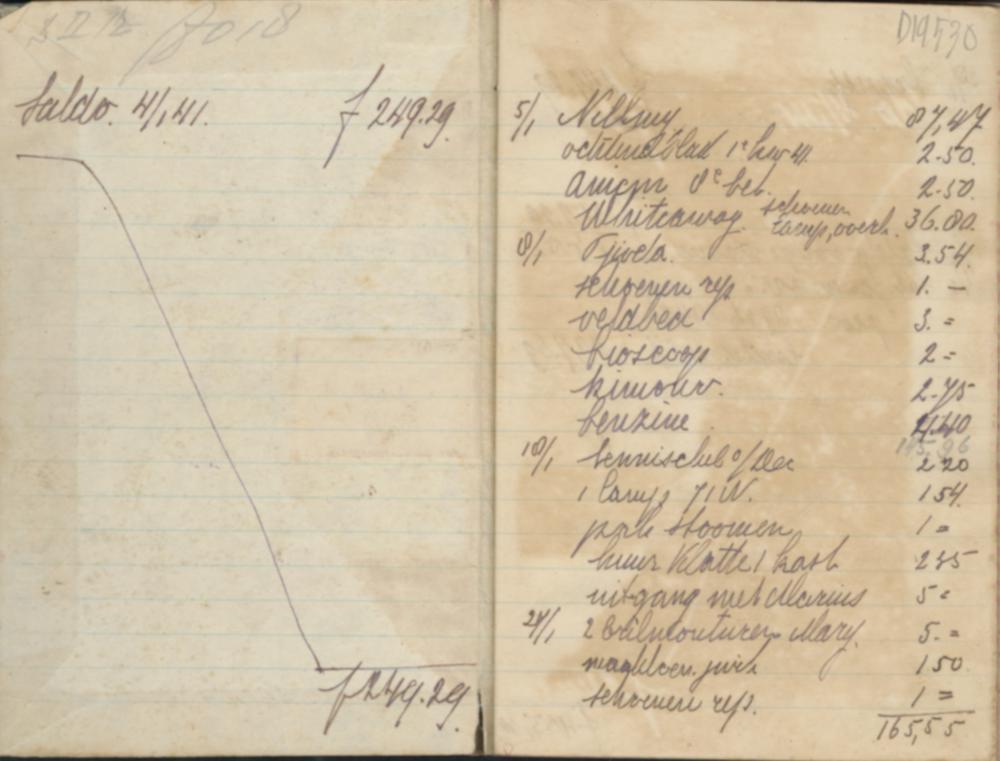 fo 18
Saldo. 4/1, 41. f 249.29.
f 249.29
D19530
5/1 Nillmy 87,47
ochtendblad 1e kw 41. 2.50.
Aniem 8e bet. 2.50.
Whiteaway. schoenen lamp, overh. 36.80.
8/1 Tjioda. 3.54.
schoenen rep 1. —
veldbed 3. =
bioscoop 2 =
kimono. 2.75
benzine 4.40
18/1 tennisclub o/Dec 2 20
1 lamp 71 W. 1 54.
jurk stoomen 1 =
huur Klatte 1 kast 2 35
uitgang met Marius 5 =
24/1 2 brilmonturen Mary. 5. =
jurk 1 50
schoenen rep. 1 =
165,55